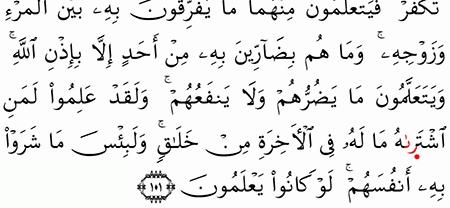 تَكْفُرْ فَيَتَعَلَّمُونَ مِنْهُمَا مَا يُفَرِّقُونَ بِهِۦ بَيْنَ ٱلْمَرْءِ
وَزَوْجِهِۦۚ وَمَا هُم بِضَآرِّينَ بِهِۦ مِنْ أَحَدٍ إِلَّا بِإِذْنِ ٱللَّهِۚ
وَيَتَعَلَّمُونَ مَا يَضُرُّهُمْ وَلَا يَنفَعُهُمْۚ وَلَقَدْ عَلِمُوا۟ لَمَنِ
ٱشْتَرىٰهُ مَا لَهُۥ فِى ٱلْأَخِرَةِ مِنْ خَلَٰقٍۚ وَلَبِئْسَ مَا شَرَوْا۟
بِهِۦٓ أَنفُسَهُمْۚ لَوْ كَانُوا۟ يَعْلَمُونَ ١٠١